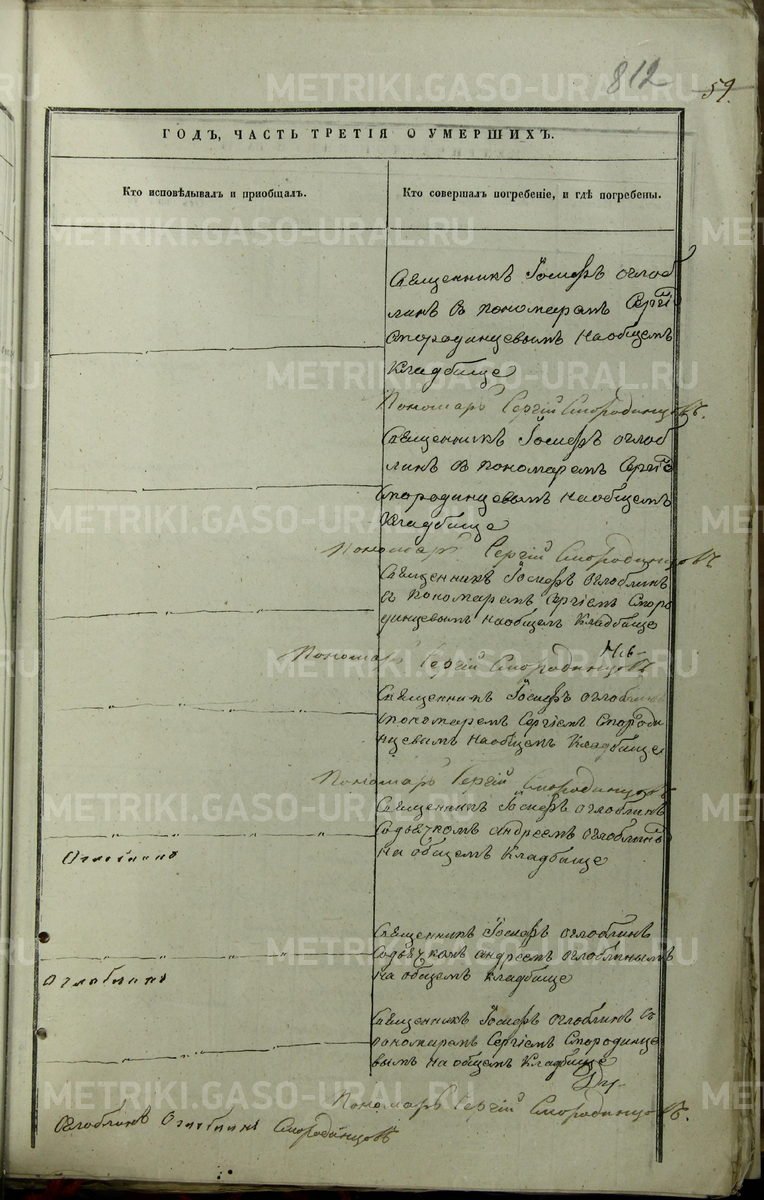 812
59.
ГОДЪ, ЧАСТЬ ТРЕТІЯ О УМЕРШИХЪ.
Кто исповѣдывалъ и пріобщалъ.
Кто совершалъ погребеніе, и гдѣ погребены.
Священникъ Іосифъ Оглоб
линъ с пономаремъ Сергіе
Смородинцевымъ на общемъ
Кладбище
Пономарь Сергій Смородинцовъ.
Священникъ Іосифъ Оглоб
линъ с пономаремъ Сергіе
Смородинцевымъ на общемъ
Кладбище
Пономарь Сергій Смородинцовъ
Священникъ Іосифъ Оглоблинъ
с пономаремъ Сергіемъ Сморо
динцевымъ на общемъ Кладбище
Пономарь Сергій Смородинцовъ
Священникъ Іосифъ Оглоблинъ
с пономаремъ Сергіемъ Смороди
нцевымъ на общемъ Кладбище
Пономарь Сергій Смородинцовъ
Священникъ Іосифъ Оглоблинъ
Содьячкомъ Андреемъ Оглоблины
на общемъ Кладбище
Оглоблинъ
Священникъ Іосифъ Оглоблинъ
Содьячкомъ Андреемъ Оглоблинымъ
на общемъ Кладбище
Оглоблинъ
Священникъ Іосифъ Оглоблинъ с
пономаремъ Сергіемъ Смородинце
вымъ на общемъ Кладбище
Пономарь Сергій Смородинцовъ.
Оглоблинъ Оглоблинъ Смородинцовъ
METRIKI.GASO-URAL.RU